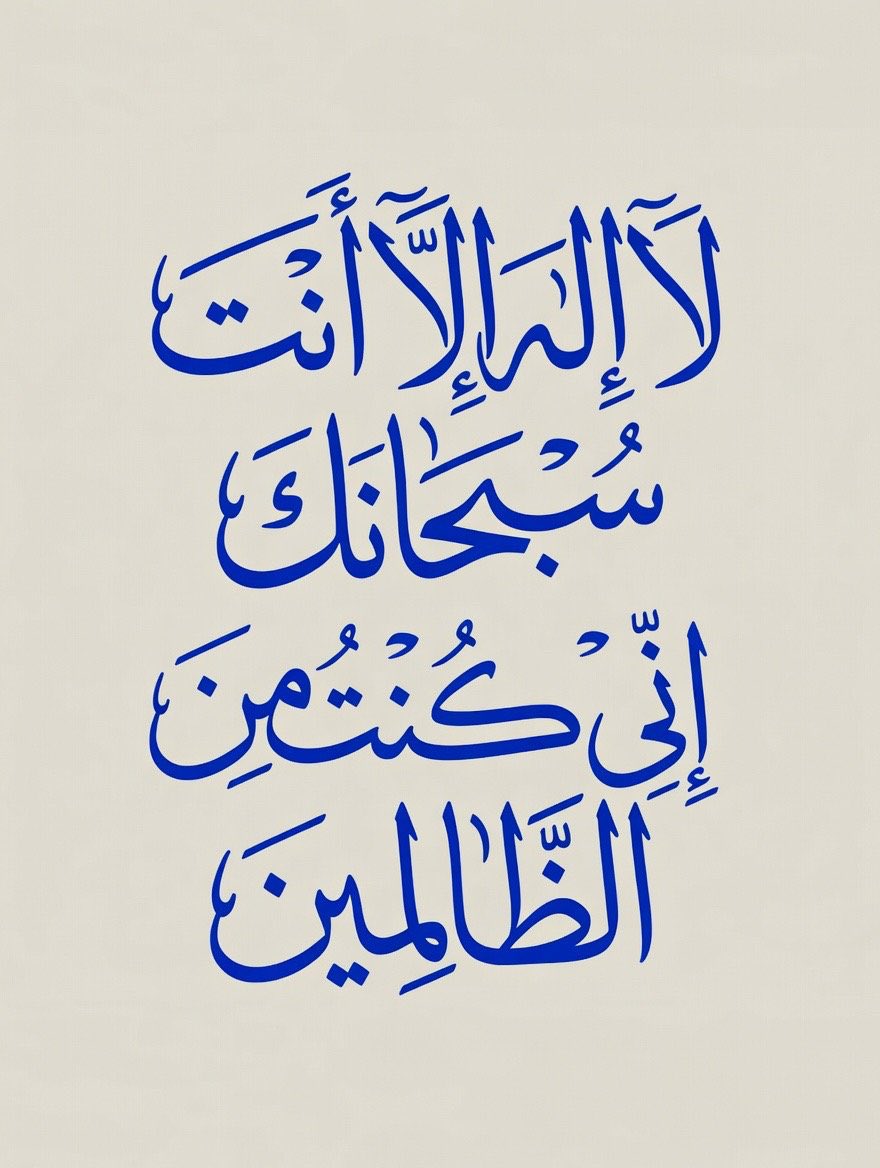 لَآ إِلَٰهَ إِلَّآ أَنْتَ
سُبْحَٰانَكَ
إِنِّي كُنْتُ مِنَ
الظَّٰالِمِينَ